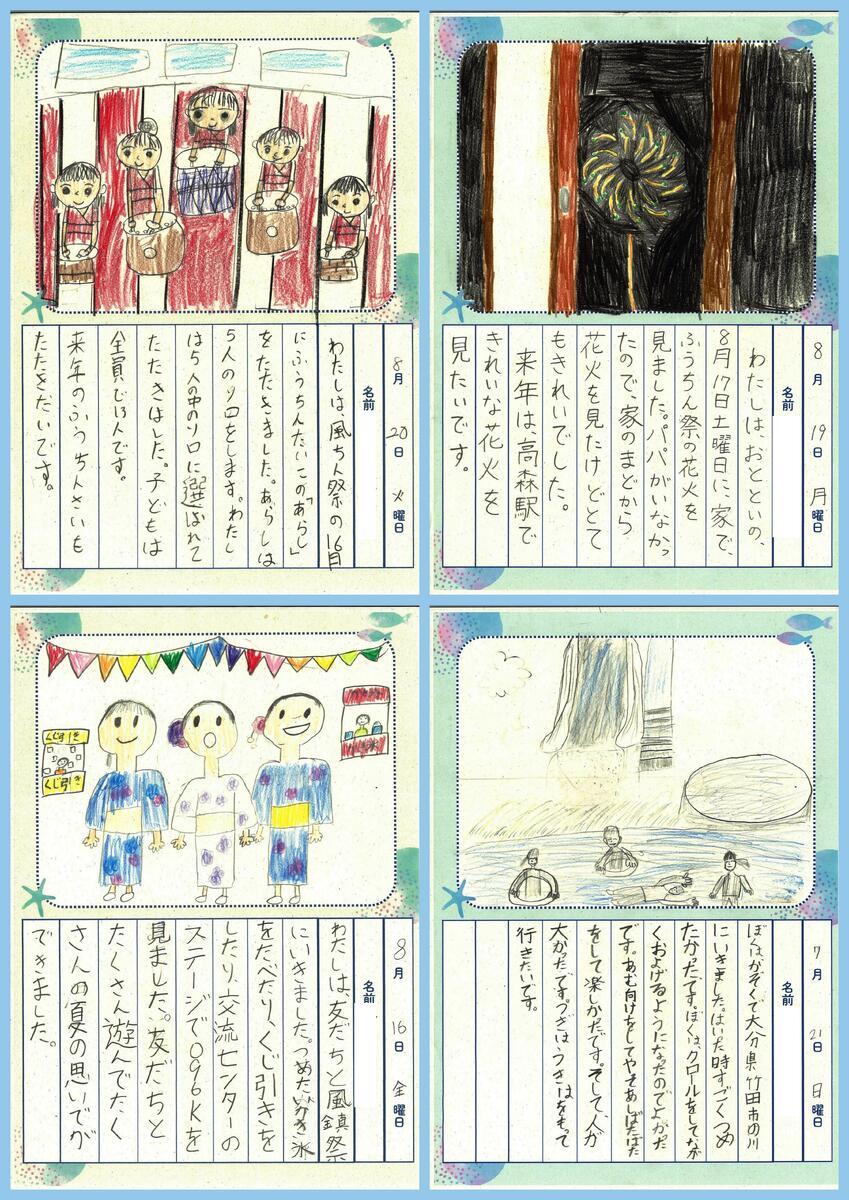 8月20日火曜日
名前
わたしは、風ちん祭の16日
にふうちんたいこの「あらし」
をたたきました。あらしは
5人のソロをします。わたし
は5人の中のソロに選ばれて
たたきはした。子どもは
全員で13人です。
来年のふうちんさいも
たたきたいです。
8月19日月曜日
名前
わたしは、おとといの、
8月17日土曜日に、家で、
ふうちん祭の花火を
見ました。パパがいなかっ
たので、家のまどから
花火を見たけどとて
もきれいでした。
来年は、高森駅で
きれいな花火を
見たいです。
くじ引き
くじ引き
8月16日金曜日
名前
わたしは、友だちと風鎮祭
にいきました。つめたいかき氷
をたべたり、くじ引きを
したり、交流センターの
ステージで096Kを
見ました。友だちと
たくさん遊んでたく
さんの夏の思いでが
できました。
7月21日日曜日
名前
ぼくはかぞくで大分県竹田市の川
にいきました。はいた時すごくつめ
たかったです。ぼくは、クロールをしてなが
くおよげるようになったのでよかった
です。あむ向けをしてやそあしばたばた
をして楽しかたです。そして、人が
大かったです。つぎは、うきはをもって
行きたいです。